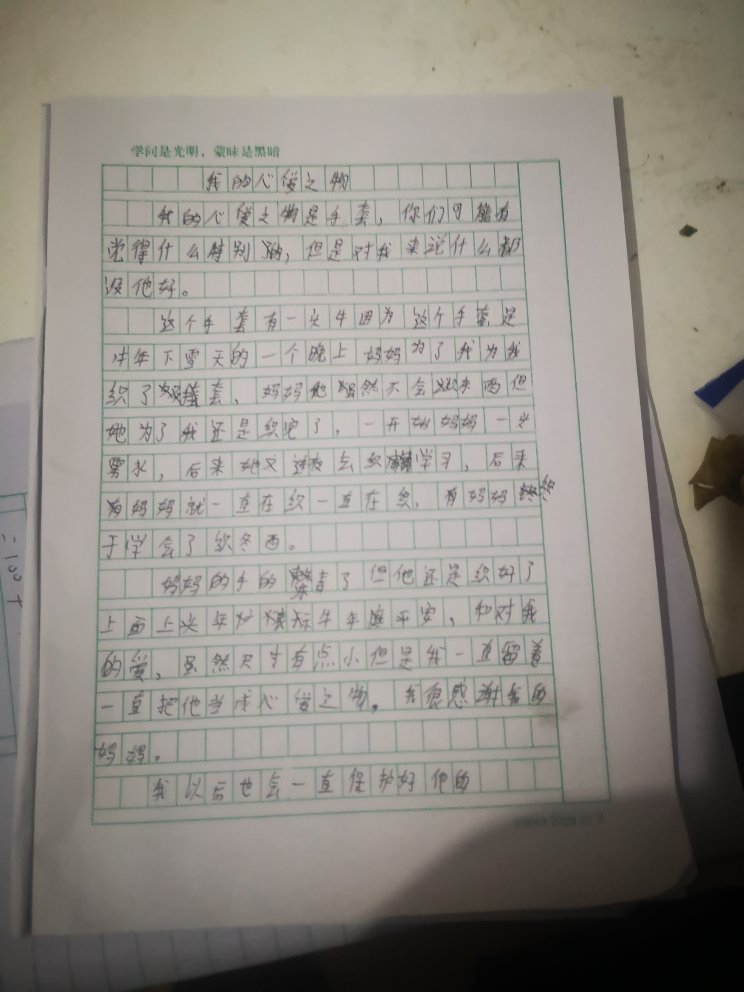 学问是光明，蒙昧是黑暗
我的心爱之物
我的心爱之物是手套，你们可能有
觉得什么特别的，但是对我来说什么都
没他好。
这个手套有一头牛因为这个手套是
牛年下雪天的一个晚上妈妈为了我为我
织了套，妈妈她虽然不会织东西但
她为了我还是织完了，一开始妈妈一
，后来她又去学习，后来
妈妈就一直在织一直在织，有妈妈终
于学会了织东西。
妈妈的手的青了但他还是织好了
上面上头牛年平安，和对我
的爱，虽然尺寸有点小但是我一直留着
一直把他当成心爱之物。我很感谢我的
妈妈。
我以后也会一直保护好他的
=100